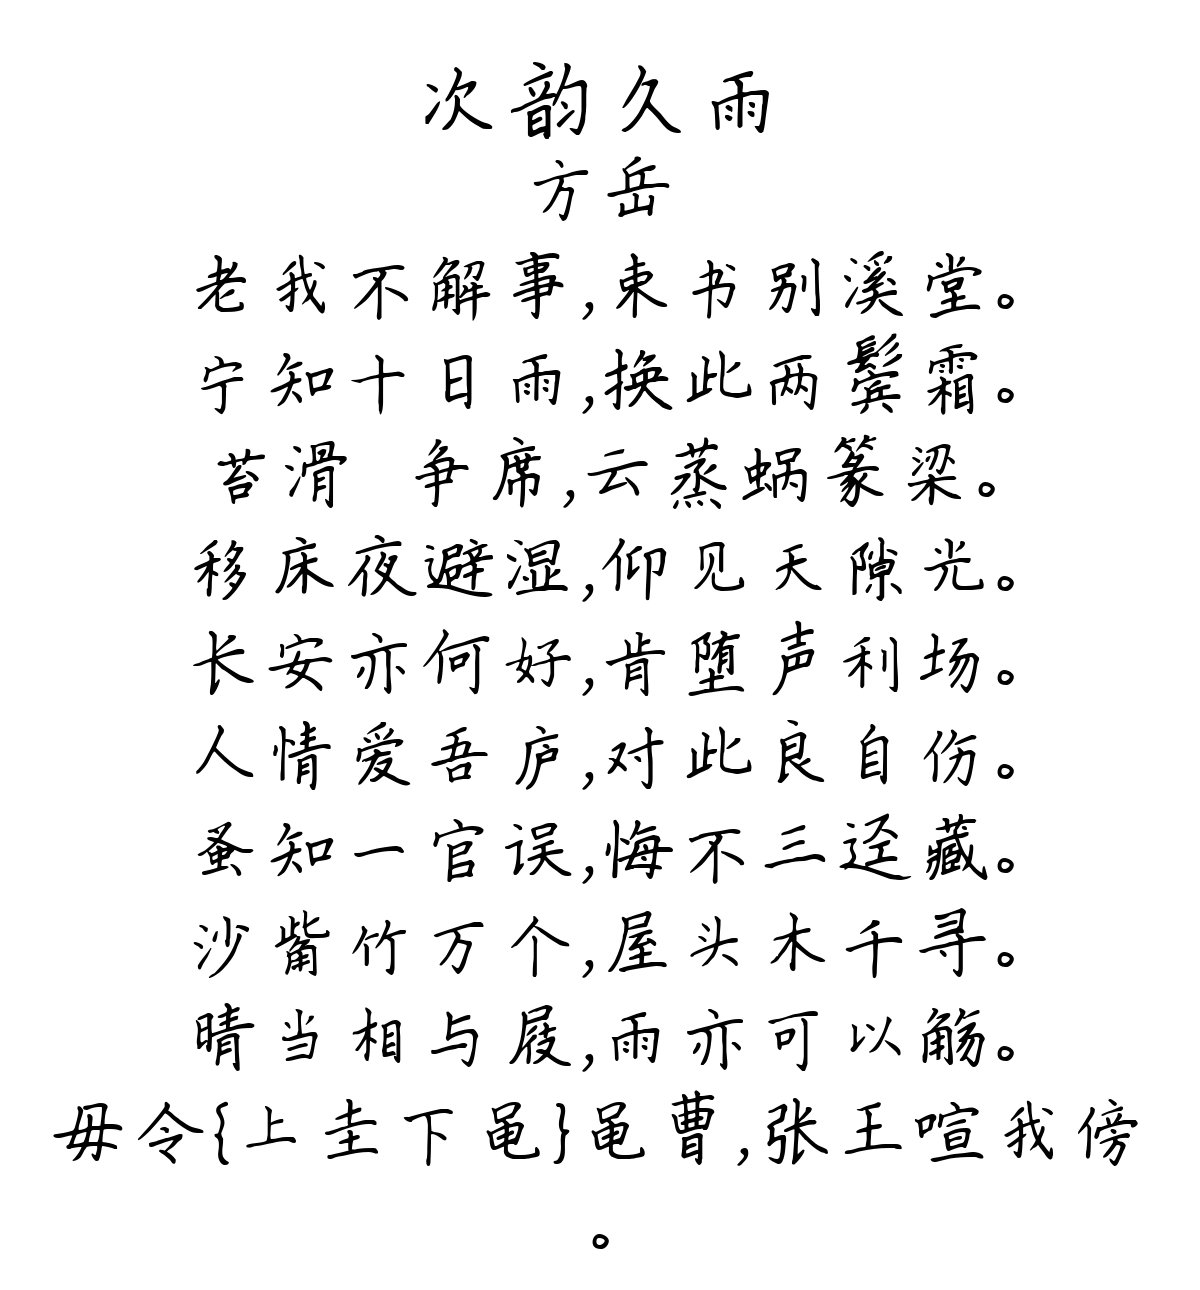 次韵久雨
方岳
老我不解事,束书别溪堂。
宁知十日雨,换此两鬓霜。
苔滑 争席,云蒸蜗篆梁。
移床夜避湿,仰见天隙光。
长安亦何好,肯堕声利场。
人情爱吾庐,对此良自伤。
蚤知一官误,悔不三迳藏。
沙觜竹万个,屋头木千寻。
晴当相与屐,雨亦可以觞。
毋令{上圭下黾}黾曹,张王喧我傍
。